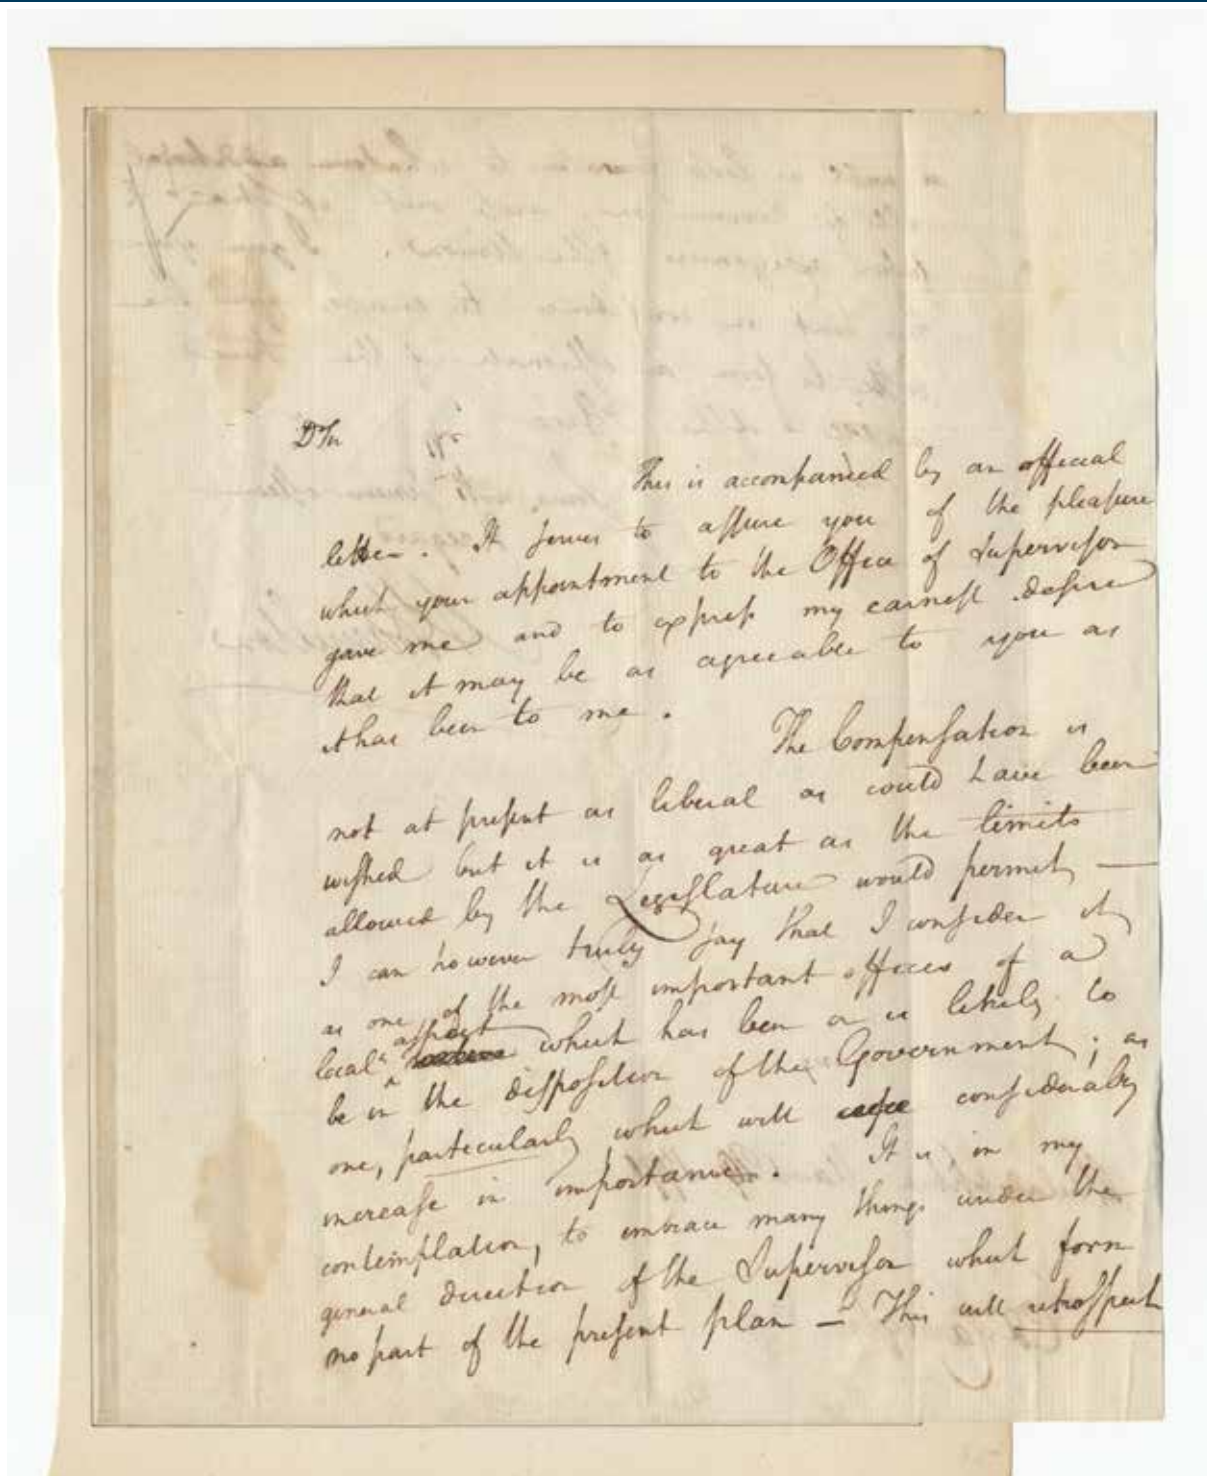 Dr Sir
This is accompanied by an official
letter. It serves to assure you of the pleasure
which your appointment to the Office of Supervisor
gave me and to express my earnest desire
that it may be as agreeable to you as
it has been to me.
The Compensation is
not at present as liberal as could have been
wished but it is as great as the limits
allowed by the Legislature would permit —
I can however truly say that I consider it
as one of the most important offices of a
local aspect which has been or is likely to
be in the disposition of the Government; as
one, particularly which will considerably
increase in importance. It is, in my
contemplation, to embrace many things under the
general direction of the Supervisor which form
no part of the present plan — This will retrospect